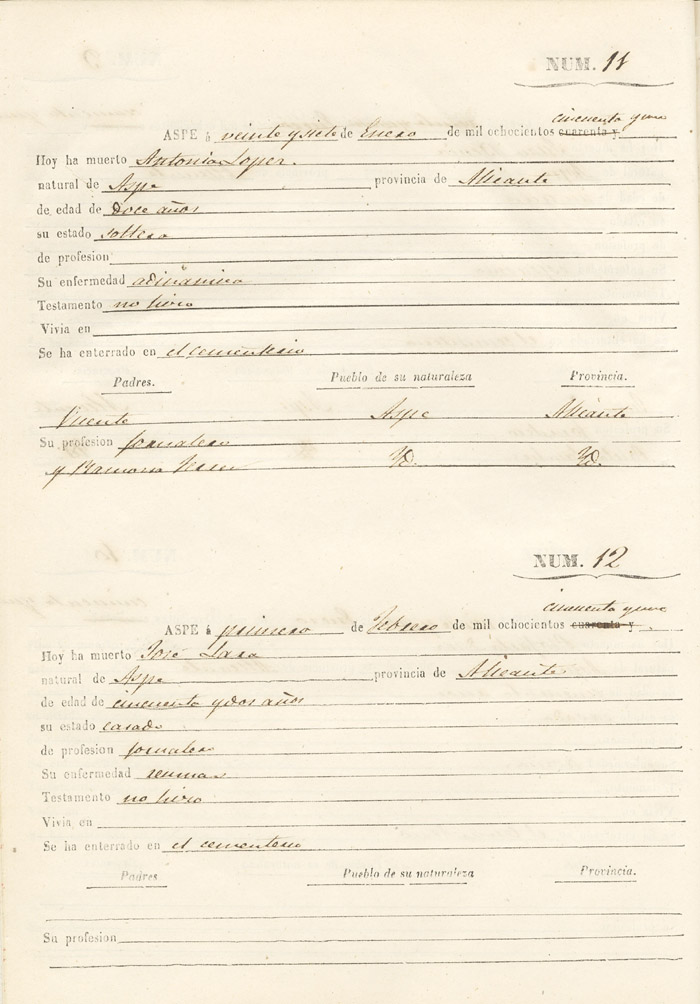 NUM. 11
cincuenta y uno
ASPE á veinte y siete de Enero de mil ochocientos cuarenta y
Hoy ha muerto Antonia Lopez.
natural de Aspe provincia de Alicante
de edad de doce años
su estado soltera
de profesion
Su enfermedad adinamica
Testamento no hizo
Vivia en
Se ha enterrado en el cementerio
Padres. Pueblo de su naturaleza Provincia.
Vicente Aspe Alicante
Su profesion jornalero
y Ramona Id. Id.
NUM. 12
cincuenta y uno
ASPE á primero de Febrero de mil ochocientos cuarenta y
Hoy ha muerto José Lara
natural de Aspe provincia de Alicante
de edad de cincuenta y dos años
su estado casado
de profesion jornalero
Su enfermedad reumas
Testamento no hizo
Vivia en
Se ha enterrado en el cementerio
Padres Pueblo de su naturaleza Provincia.
Su profesion